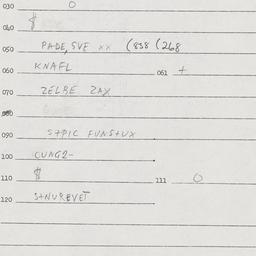 030 O
040 $
050 PADE, SVE xx (838 (268
050 KNAFL 061 +
070 ZELBE ZAX
080
090 S+PIC FUNS+UX
100 CUNG2-
110 $ 111 O
120 S+NUREVET